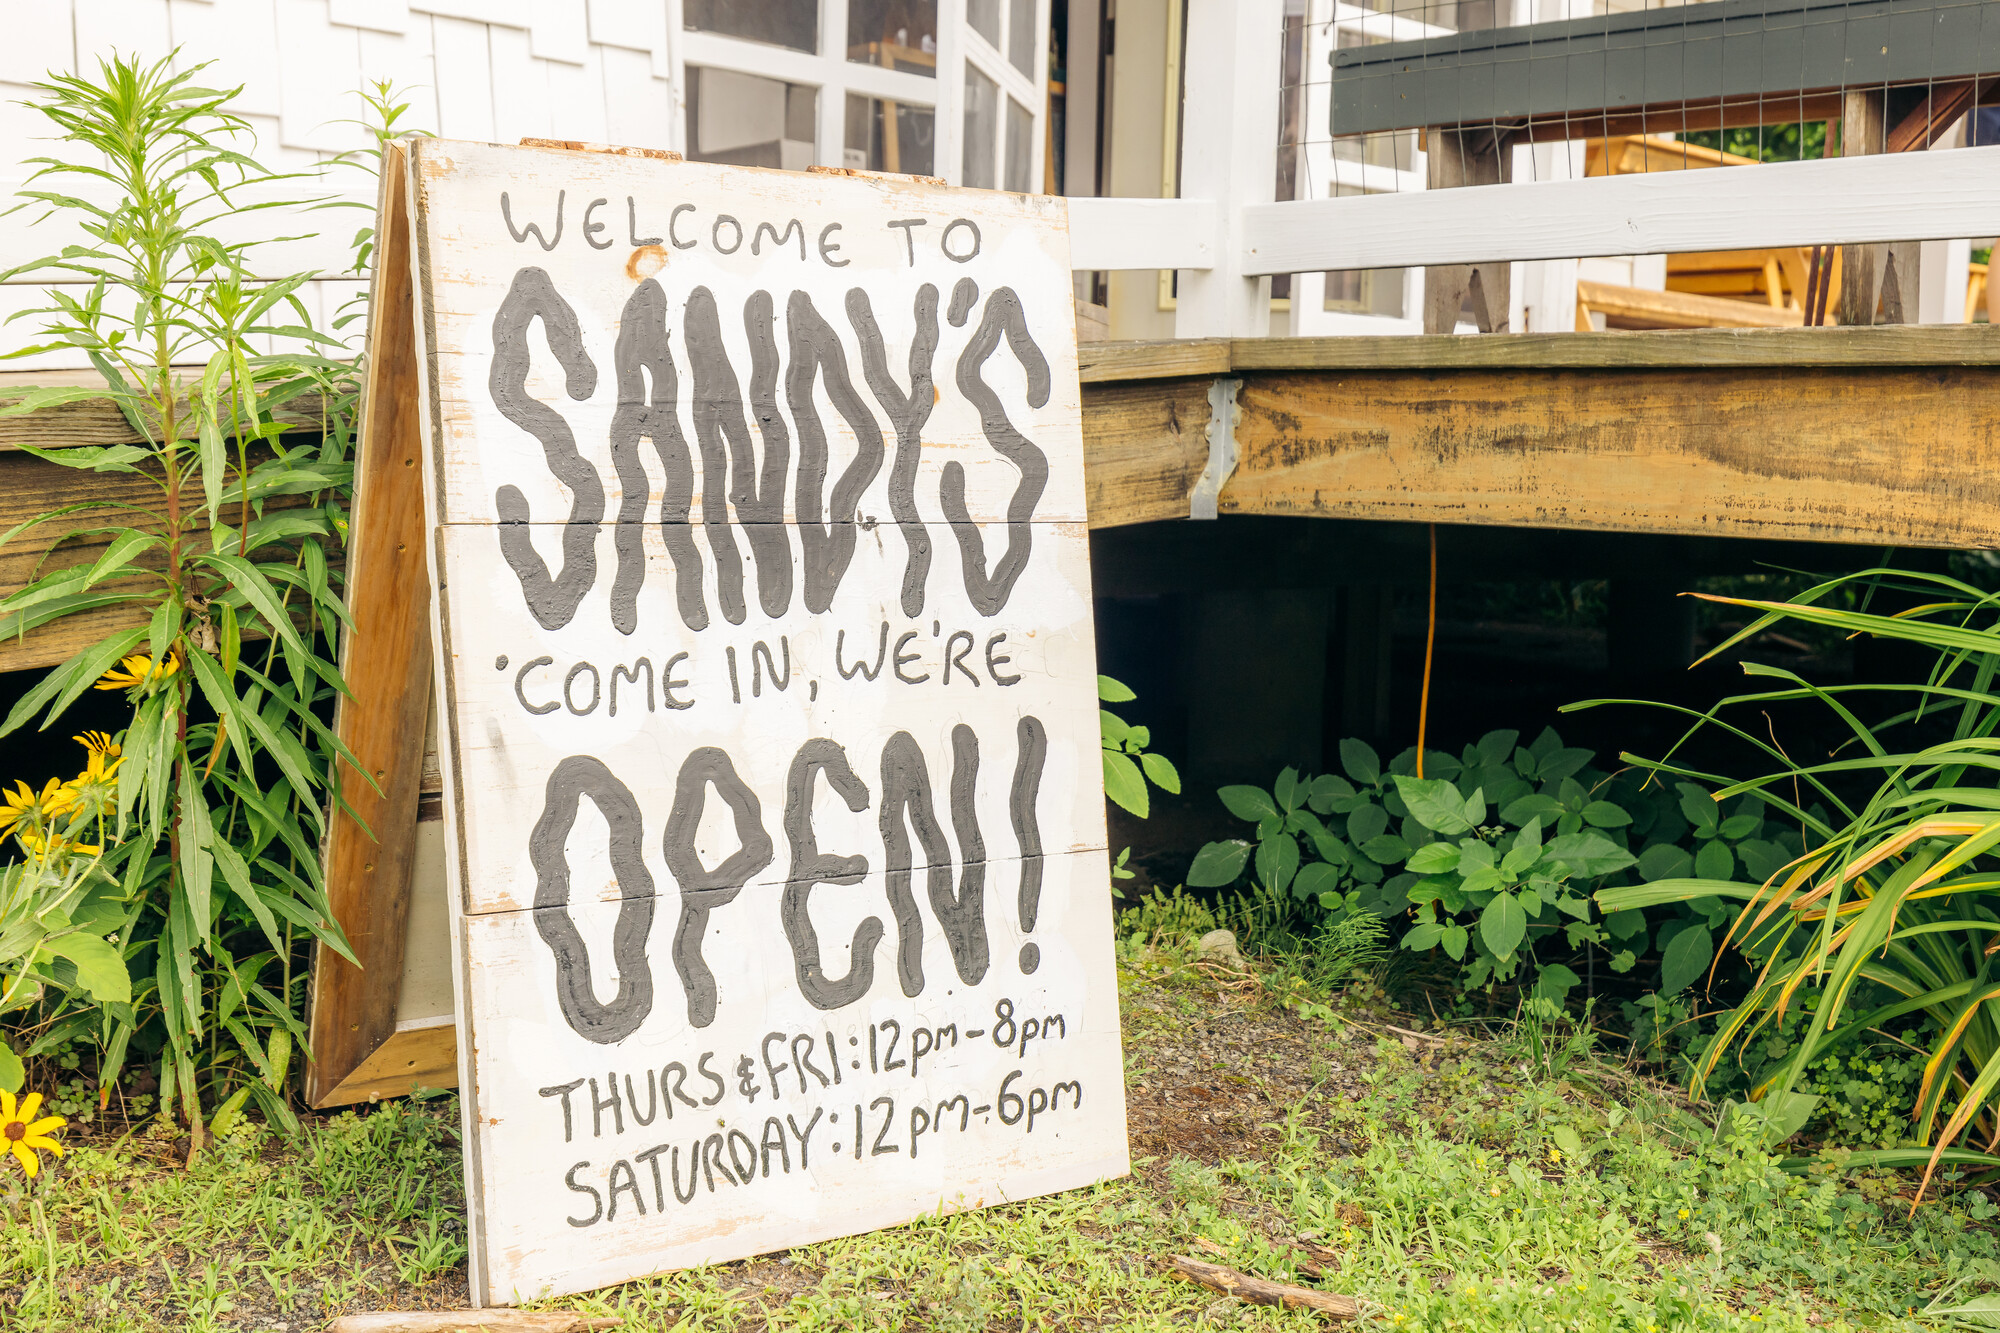 WELCOME TO
SANDY'S
'COME IN, WE'RE
OPEN!
THURS & FRI: 12pm-8pm
SATURDAY: 12pm-6pm